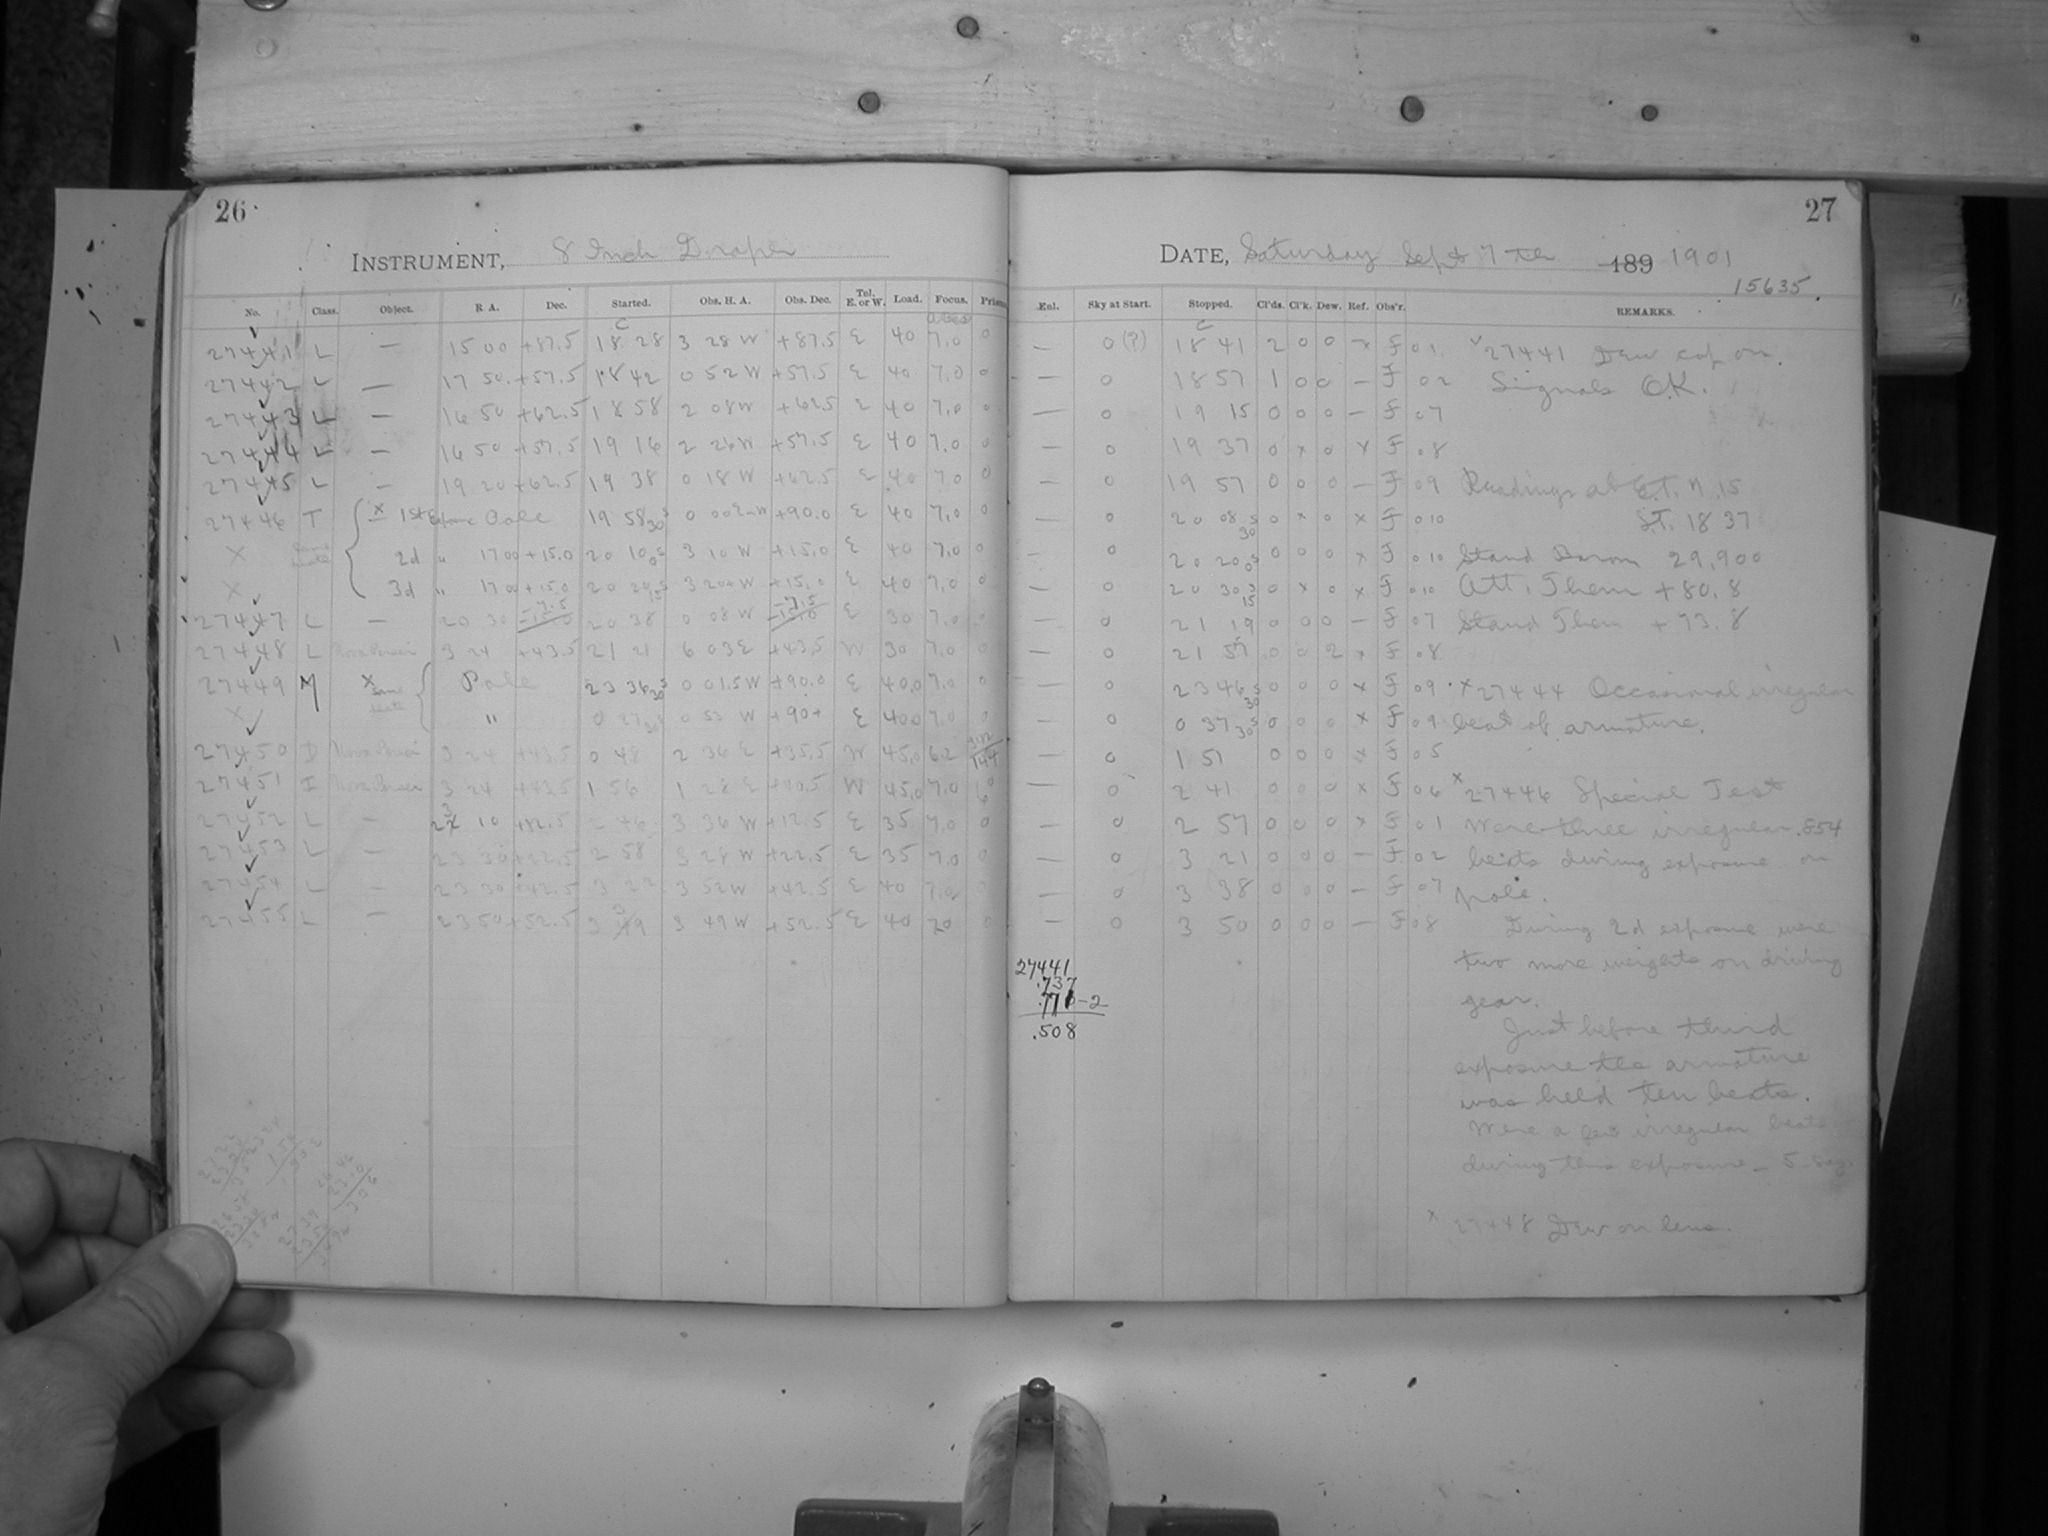 26
INSTRUMENT, 8 Inch Draper
No. Class. Object. R A. Dec. Started. Obs. H. A. Obs. Dec. Tel. E. or W. Load. Focus. Prism
27441 L — 15 00 +87.5 18 28 3 28 W +87.5 E 40 7.0 0
27442 L — 17 50 +57.5 18 42 0 52 W +57.5 E 40 7.0 0
27443 L — 16 50 +62.5 18 58 2 08 W +62.5 E 40 7.0 0
27444 L — 16 50 +57.5 19 16 2 26 W +57.5 E 40 7.0 0
27445 L — 19 20 +62.5 19 38 0 18 W +62.5 E 40 7.0 0
27446 T X 1st Pole 19 58 30s 0 00 +90.0 E 40 7.0 0
X 2d " 17 00 +15.0 20 10 0s 3 10 W +15.0 E 40 7.0 0
X 3d " 17 00 +15.0 20 20 15s 3 20+ W +15.0 E 40 7.0 0
27447 L — 20 30 -7.5 20 38 0 08 W -7.5 E 30 7.0 0
27448 L Nova Persei 3 24 +43.5 21 21 6 03 E +43.5 W 30 7.0 0
27449 M X same plate Pole 23 36 30s 0 01.5 W +90.0 E 40.0 7.0 0
X " 0 27 30s 0 53 W +90+ E 40.0 7.0 0
27450 D Nova Persei 3 24 +43.5 0 48 2 36 E +35.5 W 45.0 6.2
27451 I Nova Persei 3 24 +43.5 1 56 1 28 E W 45.0 7.0 0
27452 L — 23 10 +12.5 2 46 3 36 W +12.5 E 35 7.0 0
27453 L — 23 30 +22.5 2 58 3 28 W +22.5 E 35 7.0 0
27454 L — 23 30 +42.5 3 22 3 52 W +42.5 E 40 7.0 0
27455 L — 23 50 +52.5 3 39 3 49 W +52.5 E 40 70 0
27
DATE, Saturday Sept 7th 189 1901
15635
Enl. Sky at Start. Stopped. Cl'ds. Cl'k. Dew. Ref. Obs'r. REMARKS.
— 0 (?) 18 41 2 0 0 x F 01 27441 Dew cap on.
— 0 18 57 1 0 0 — F 02 Signals O.K.
— 0 19 15 0 0 0 — F 07
— 0 19 37 0 x 0 x F 08
— 0 19 57 0 0 0 — F 09 Readings at
— 0 20 08 30s 0 x 0 x F 010 S.T. 18 37
— 0 20 20 0s 0 0 0 x F 010 Stand Barom 29,900
— 0 20 30 15s 0 x 0 x F 010 Att. Them +80.8
— 0 21 19 0 0 0 — F 07 Stand Them +73.8
— 0 21 57 0 0 2 x F 08
— 0 23 46 30s 0 0 0 x F 09 x 27444 Occasional irregular
— 0 0 37 30s 0 0 0 x F 09 beat of armature.
— 0 1 51 0 0 0 x F 05
— 0 2 41 0 0 0 x F 06 x 27446 Special Test
— 0 2 57 0 0 0 x F 01 Were three irregular .854
— 0 3 21 0 0 0 — F 02 beats during exposure on
— 0 3 38 0 0 0 — F 07 pole.
— 0 3 50 0 0 0 — F 08 During 2d exposure were
two more weights on driving
gear.
Just before third
exposure the armature
was held ten beats.
Were a few irregular beats
during this exposure – 5 say.
x 27448 Dew on lens.
27441
.737
-2
.508